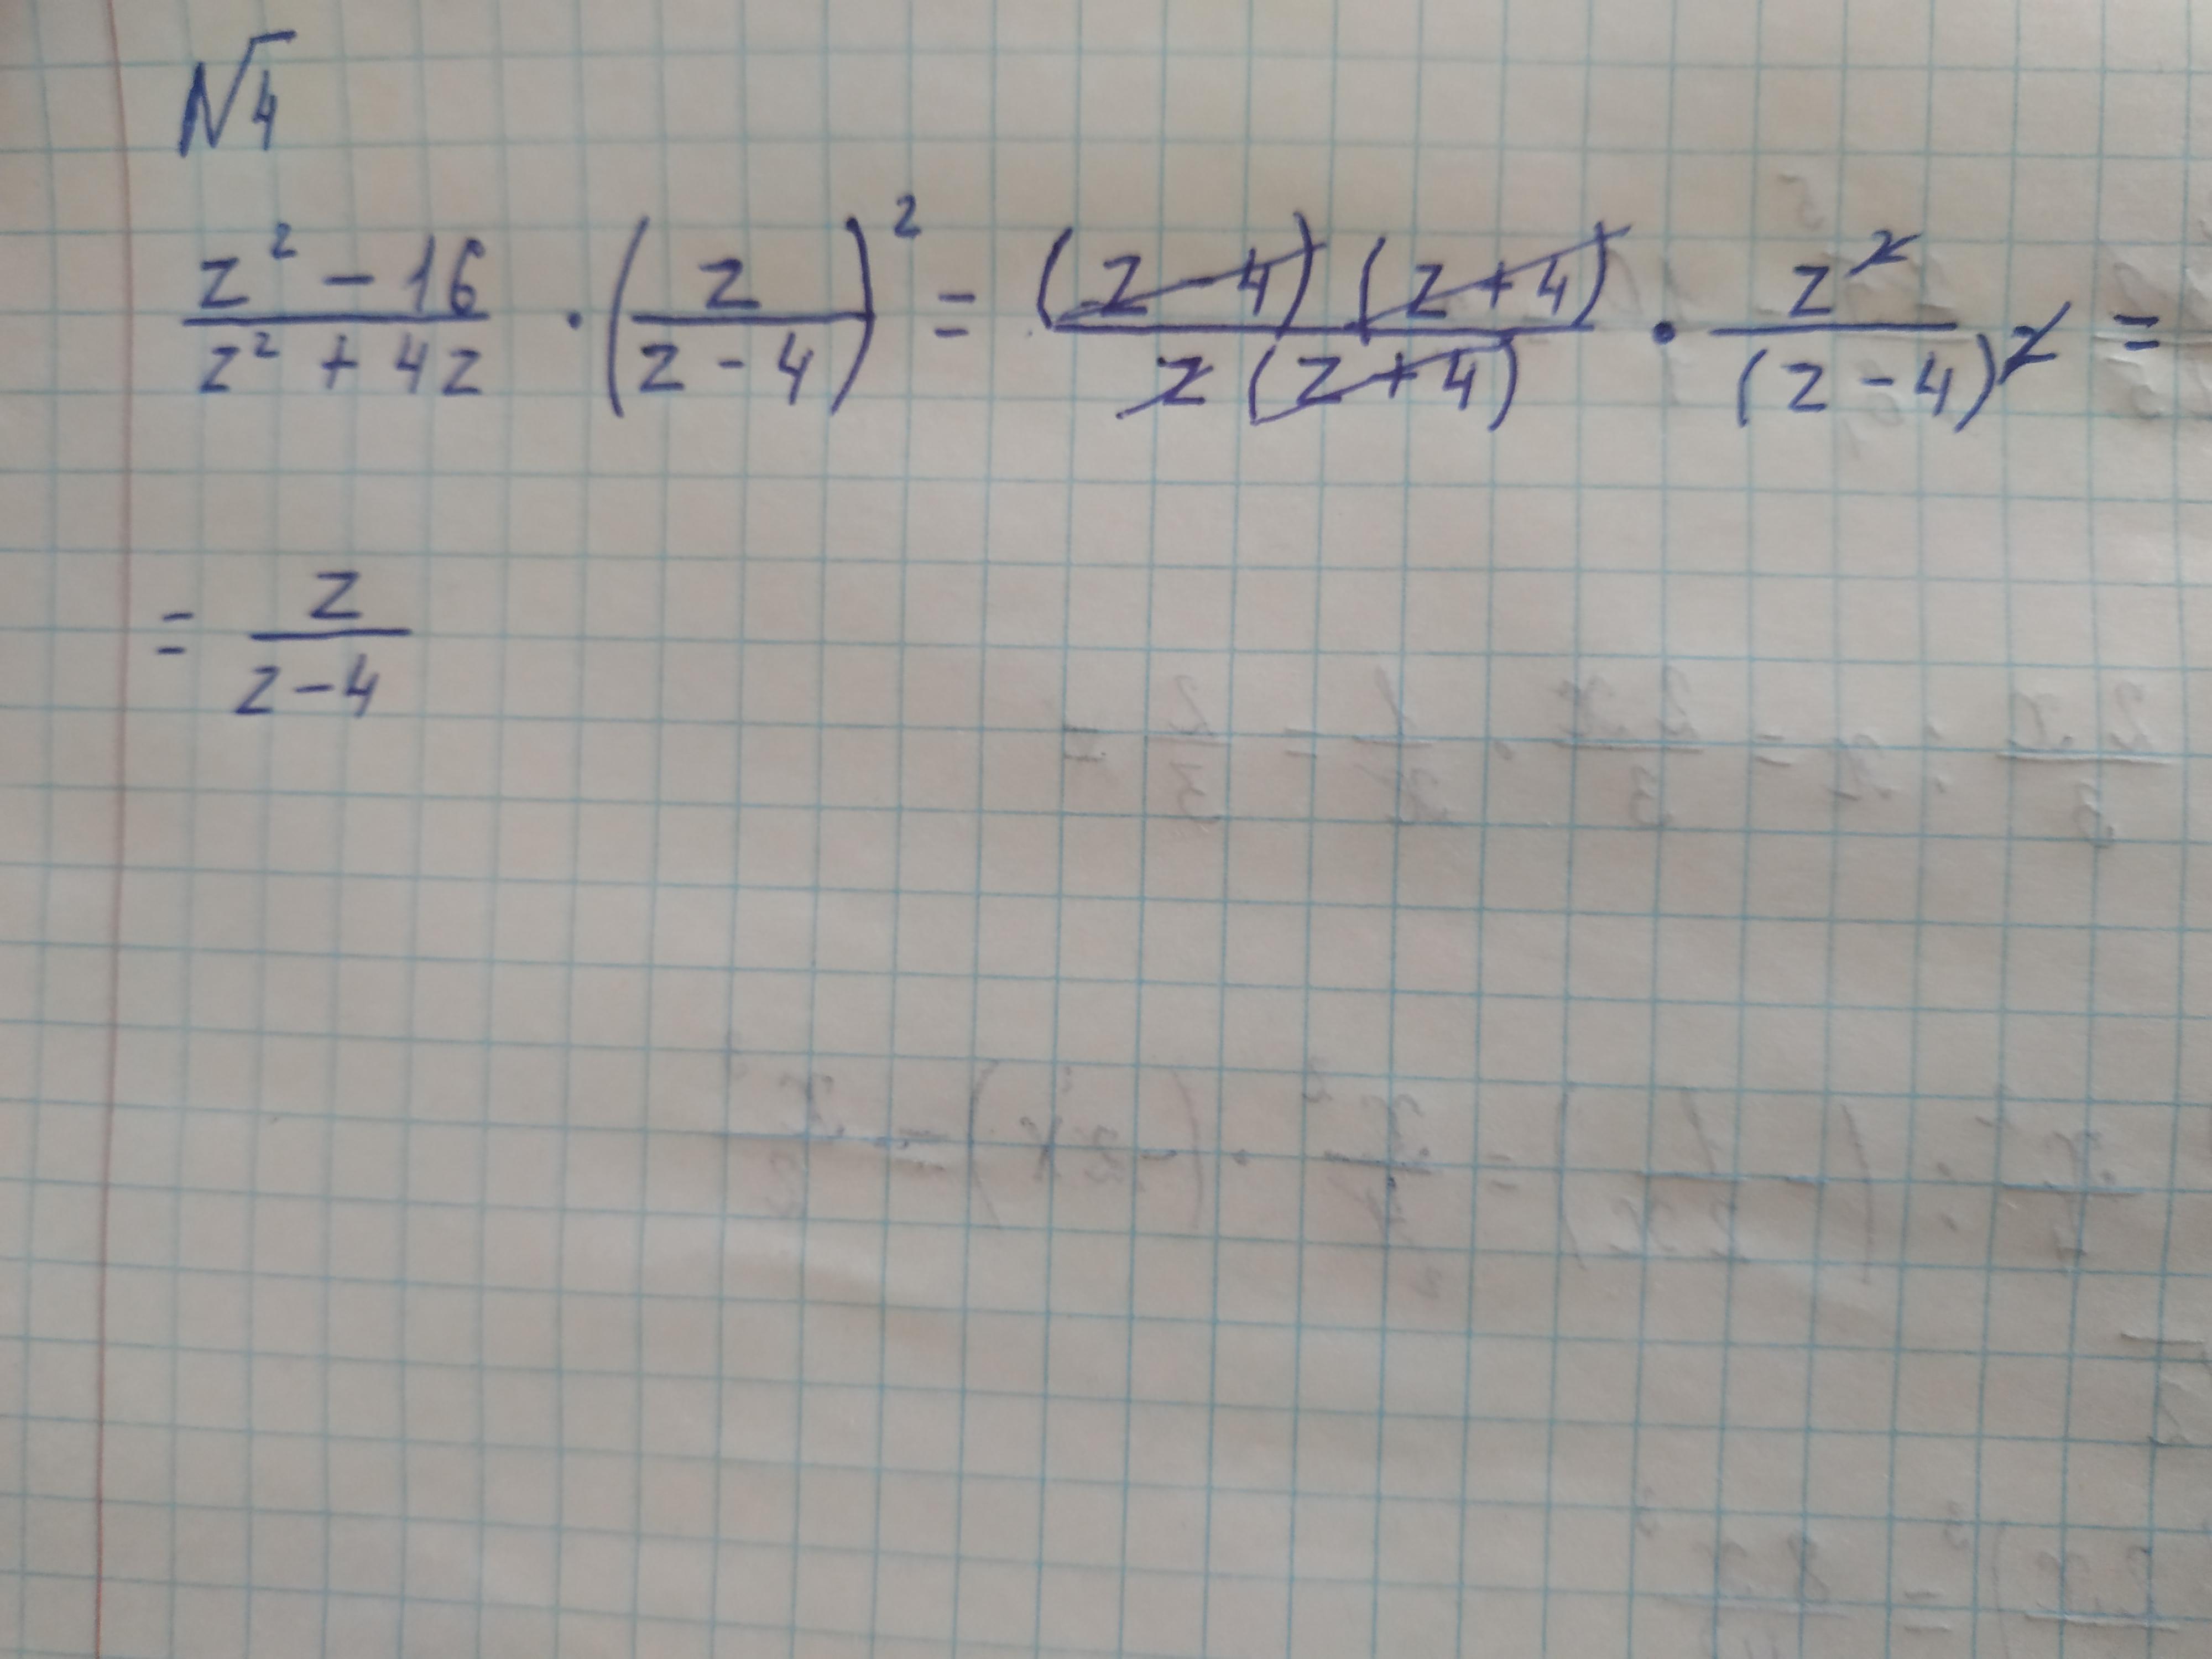 №4
z² - 16 / z² + 4z · (z / z - 4)² = (z - 4)(z + 4) / z(z + 4) · z² / (z - 4)² =
= z / z - 4